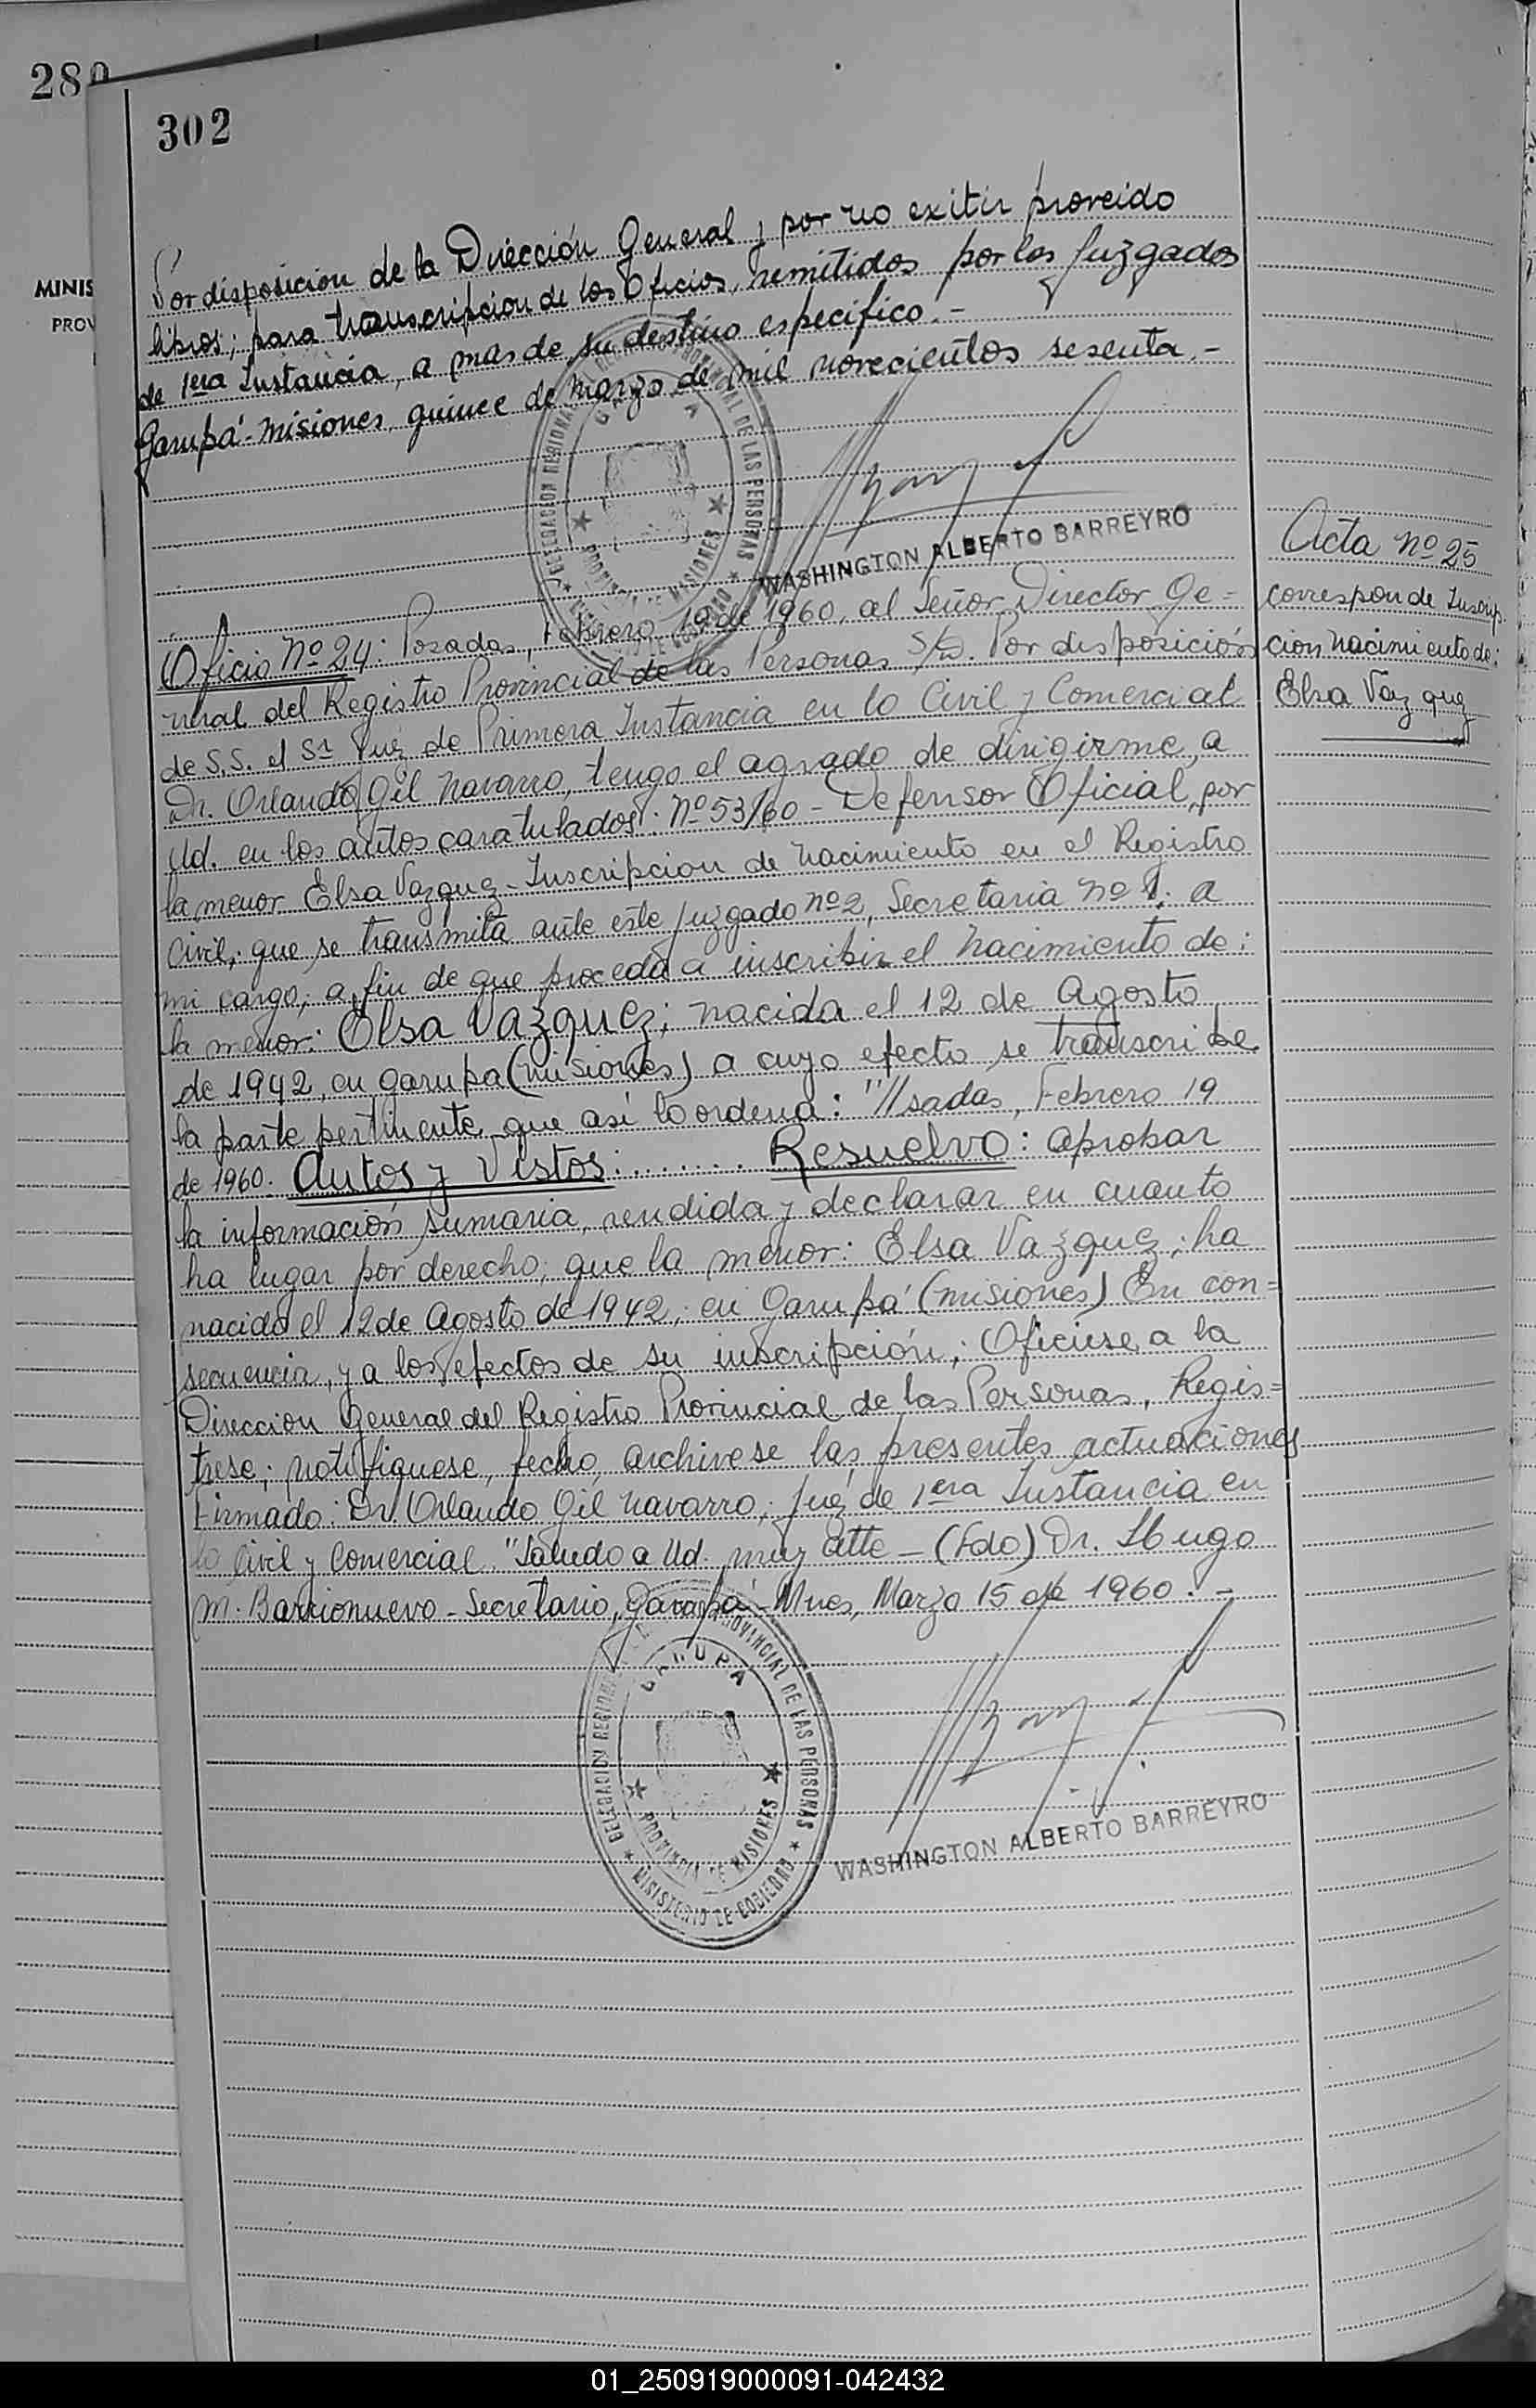 280
302
MINIS
PROV
Por disposicion de la Dirección General y por no exitir proveido
libros; para transcripcion de los Oficios, remitidos por los Juzgados
de 1era Instancia, a mas de su destino especifico.-
Garupá-Misiones, quince de Marzo de mil novecientos sesenta.-
DELEGACION REGIONAL PROVINCIAL DE LAS PERSONAS
PROVINCIA DE MISIONES
WASHINGTON ALBERTO BARREYRO
Acta Nº 25
corresponde Inscrip
cion nacimiento de:
Elsa Vazquez
Oficio Nº 24: Posadas, Febrero 19 de 1960, al Señor Director Ge=
neral del Registro Provincial de las Personas S/D. Por disposición
de S.S. el Sr Juez de Primera Instancia en lo Civil y Comercial
Dr. Orlando Gil Navarro, tengo el agrado de dirigirme, a
Ud. en los autos caratulados: Nº 53/60 - Defensor Oficial, por
la menor Elsa Vazquez - Inscripcion de nacimiento en el Registro
Civil; que se transmita ante este Juzgado nº 2, Secretaria Nº 1. a
mi cargo; a fin de que proceda a inscribir el nacimiento de:
la menor: Elsa Vazquez; nacida el 12 de Agosto
de 1942, en Garupa (Misiones) a cuyo efecto se transcribe
la parte pertinente, que así lo ordena: "//sadas, Febrero 19
de 1960. Autos y Vistos: ....... Resuelvo: aprobar
la información sumaria, rendida y declarar en cuanto
ha lugar por derecho; que la menor: Elsa Vazquez; ha
nacido el 12 de Agosto de 1942; en Garupá (Misiones) En con=
secuencia, y a los efectos de su inscripción; Ofíciese, a la
Direccion General del Registro Provincial de las Personas, Regis=
trese; notifiquese, fecho, archivese las presentes actuaciones
Firmado: Dr. Orlando Gil Navarro; Juez de 1era Instancia en
lo Civil y Comercial. "Saludo a Ud. muy atte - (Fdo) Dr. Hugo
M. Barrionuevo - Secretario, Garupá - Mnes, Marzo 15 de 1960.-
DELEGACION REGIONAL PROVINCIAL DE LAS PERSONAS
GARUPA
PROVINCIA DE MISIONES
MINISTERIO DE GOBIERNO
WASHINGTON ALBERTO BARREYRO
01_250919000091-042432